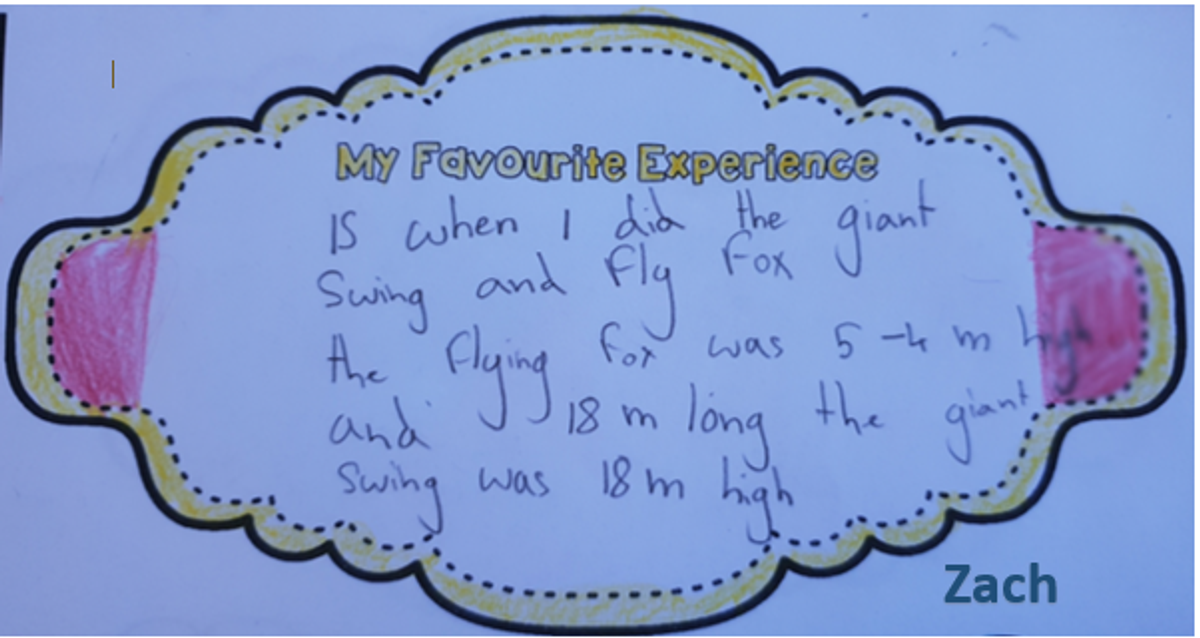 My Favourite Experience
IS when I did the giant
Swing and Fly Fox
the flying fox was 5-4 m high
and 18 m long the giant
Swing was 18 m high
Zach